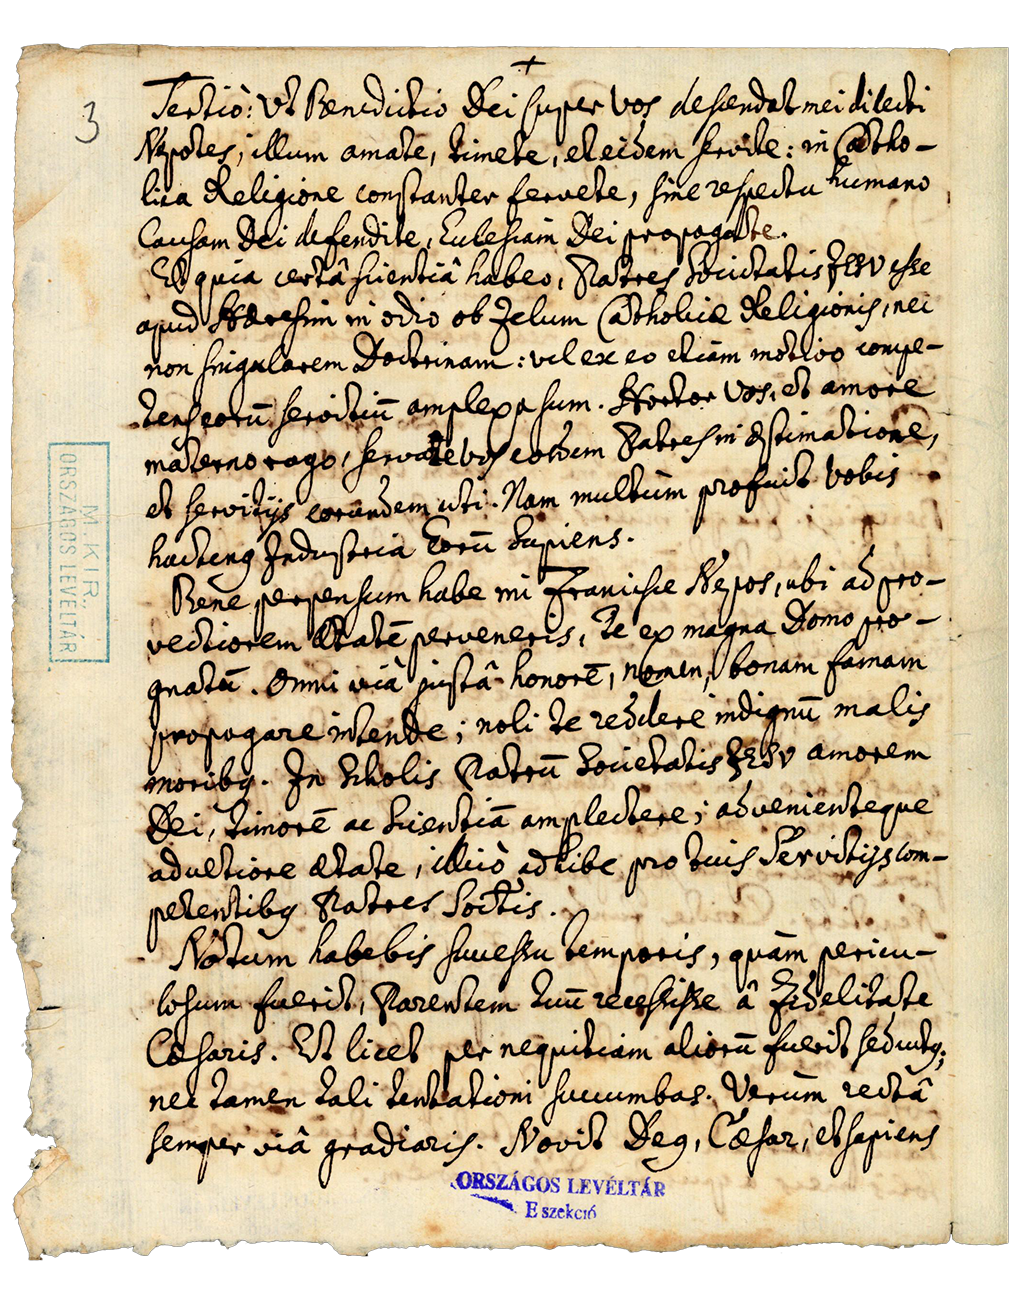 +
3
Tertiò: Ut Benedictio Dei super Vos descendat mei dilecti
Nepotes, illum amate, timete, et eidem servite: in Catho-
lica Religione constanter fervete, sine respectu humano
Causam Dei defendite, Ecclesiam Dei propagate.
Et quia certâ scientiâ habeo, Patres Societatis JESV esse
apud Hæresim in odio ob Zelum Catholicæ Religionis, nec
non singularem Doctrinam: vel ex eo etiam motivo compe-
tens eorū servitiū amplexa sum. Hortor Vos, et amore
materno rogo, servate vos eosdem Patres in æstimatione,
et servitijs eorundem uti. Nam multùm profuit Vobis
hactenq Industria Eorū sapiens.
Bene perpensum habe mi Francisce Nepos, ubi ad pro-
vectiorem Ætatē perveneris, Te ex magna Domo pro-
gnatū. Omni viâ justâ honorē, nomen, bonam famam
propagare intende; noli te reddere indignū malis
moribq. In Scholis Patrū Societatis JESV amorem
Dei, timorē ac Scientiā amplectere; advenienteque
adultiore ætate, illicò adhibe pro tuis Servitijs com-
petentibq Patres Soctis.
Notum habebis successu temporis, quàm pericu-
losum fuerit, Parentem tuū recessisse â Fidelitate
Cæsaris. Et licet per nequitiam aliorū fuerit seductq;
nec tamen tali tentationi succumbas. Verùm rectâ
semper viâ gradiaris. Novit Deq, Cæsar, et sapiens
M. KIR.
ORSZÁGOS LEVÉLTÁR
ORSZÁGOS LEVÉLTÁR
E szekció